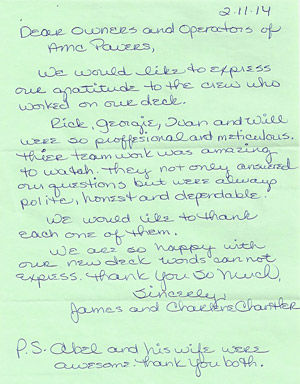 2-11-14
Dear Owners and Operators of
Amc Pavers,
We would like to express
our gratitude to the crew who
worked on our deck.
Rick, Georgie, Juan and Will
were so proffesional and meticulous.
Thier teamwork was amazing
to watch. They not only answered
our questions but were always
polite, honest and dependable.
We would like to thank
each one of them.
We are so happy with
our new deck words can not
express. Thank you so much,
Sincerely,
James and Chantler
P.S. Abel and his wife were
awesome. thank you both.